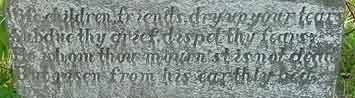 children, friends, dry up your tears
Subdue thy grief, dispel thy fears;
He whom thou mourn'st is not dead
But risen from his earthly bed.